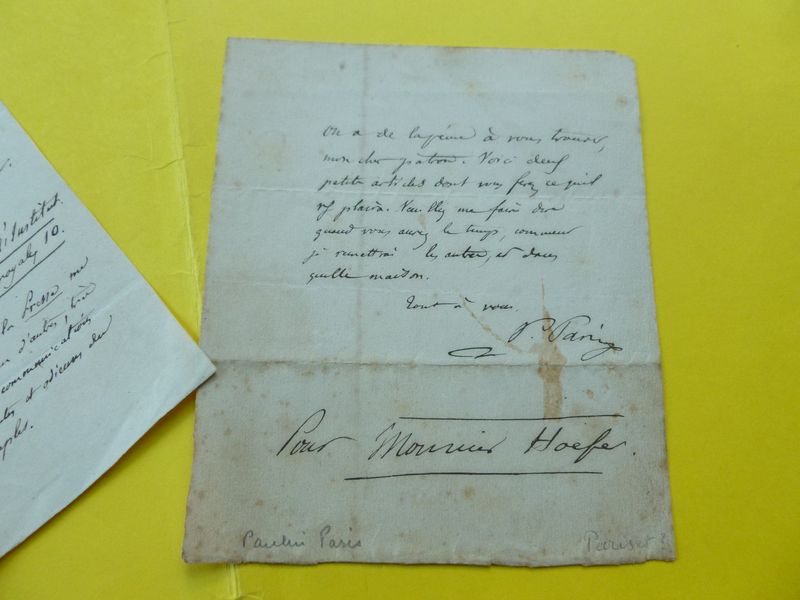 l'Institut.
royales 10.
la Presse me
d'autres, très
communications
et
On a de la peine à vous trouver,
mon cher patron. Voici deux
petits articles dont vous ferez ce qu'il
plaira. Veuillez me faire dire
quand vous aurez le temps, comment
je remettrai les autres, et dans
quelle maison.
Tout à vous.
P. Paris
Pour Monsieur Hoefer.
Paulin Paris
Pariset ?